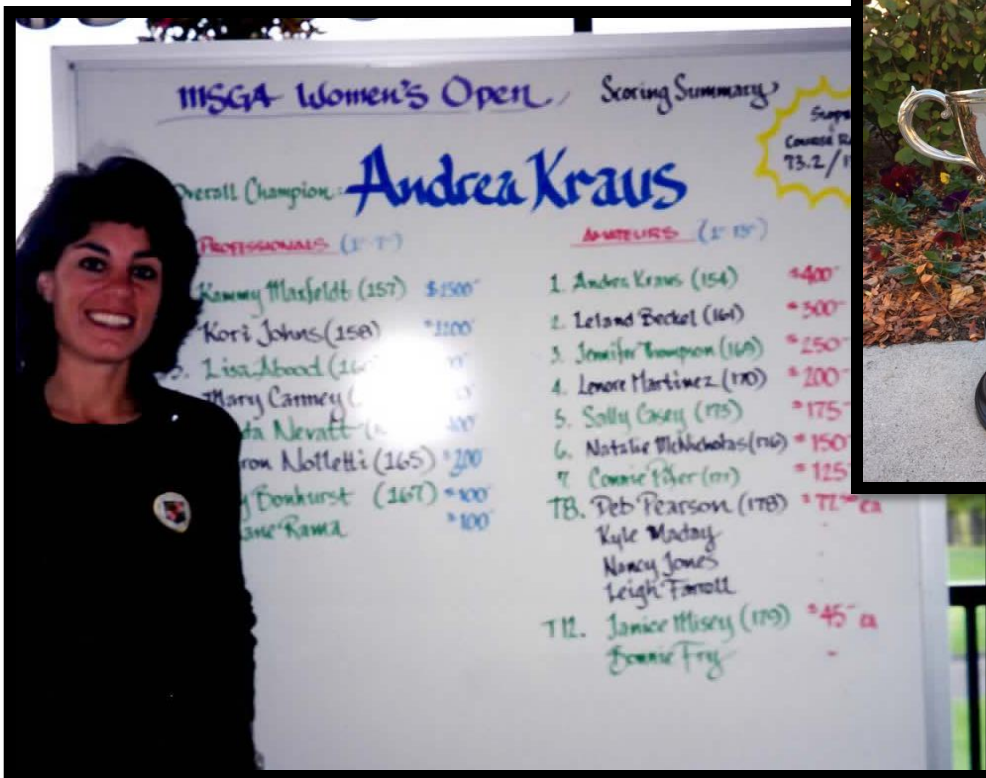 MSGA Women's Open, Scoring Summary
Slope
Course
73.2/
Overall Champion: Andrea Kraus
PROFESSIONALS
Kammy Maxfeldt (157) $1500
Kori Johns (158)
3. Lisa Abood
Mary Carney
Nevatt
ron Nolletti (165) $200
Bonhurst (167) $100
Rama $100
AMATEURS
1. Andrea Kraus (154) $400
2. Leland Beckel (161) $300
3. Jennifer Thompson (169) $250
4. Lenore Martinez (170) $200
5. Sally Casey (175) $175
6. Natalie McNicholas (176) $150
7. Connie (177) $125
T8. Deb Pearson (178) ea
Kyle Maday
Nancy Jones
Leigh Farroll
T12. Janice Misey (179) $45 ea
Bonnie Fry